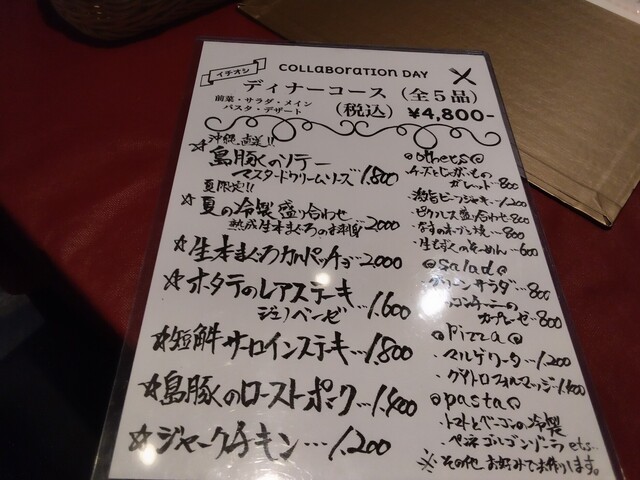 イチオシ
COLLABORATION DAY
ディナーコース（全５品）
前菜・サラダ・メイン
パスタ・デザート
（税込） ¥4,800-
沖縄直送!!
☆島豚のソテー
マスタードクリームソース…1,800
夏限定!!
☆夏の冷製盛り合わせ
熟成生本まぐろのお刺身 2,000
☆生本まぐろカルパッチョ…2,000
☆ホタテのレアステーキ
ジェノベーゼ …1,600
☆短角牛サーロインステーキ…1,800
☆島豚のローストポーク…1,400
☆ジャークチキン…1,200
@others@
・チーズとじゃがいもの
ガレット…800
・激旨ビーフジャーキー…1,200
・ピクルス盛り合わせ 800
・なすのオーブン焼…800
・生もずくのそーめん…600
@salad@
・グリーンサラダ…800
カプレーゼ…800
@Pizza@
・マルゲリータ…1,200
・クワトロフォルマッジ…1,400
@pasta@
・トマトとベーコンの冷製
・ペンネゴルゴンゾーラ etc...
※その他、お好みでお作りします。